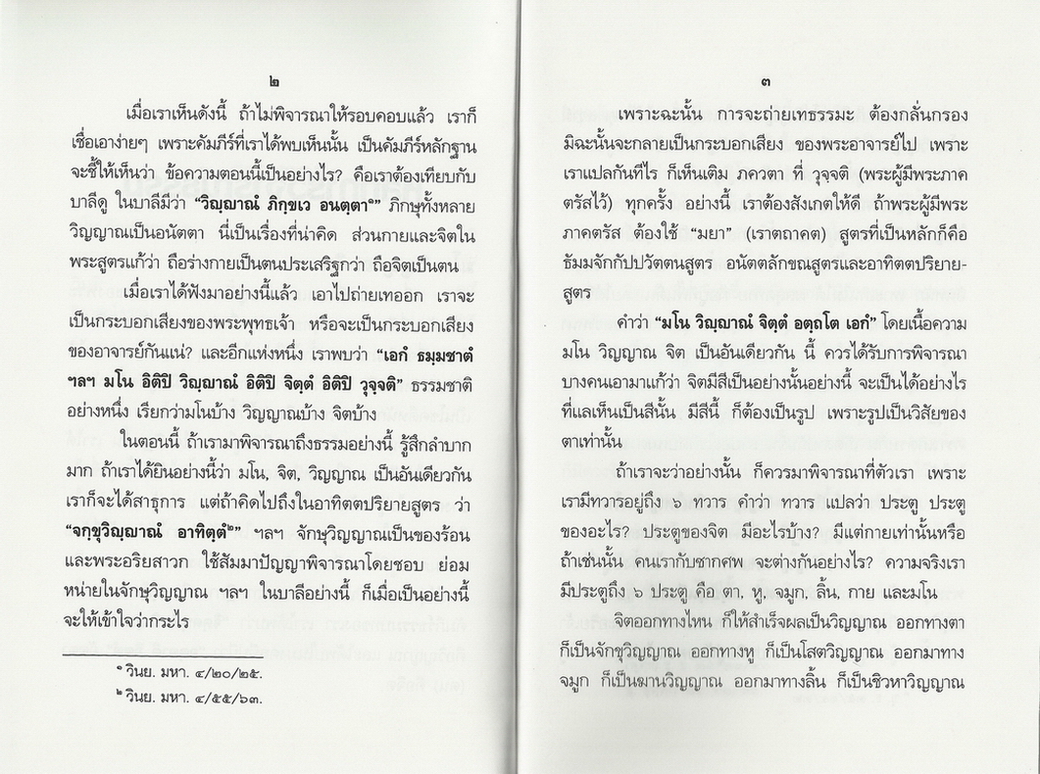 ๒
เมื่อเราเห็นดังนี้ ถ้าไม่พิจารณาให้รอบคอบแล้ว เราก็
เชื่อเอาง่ายๆ เพราะคัมภีร์ที่เราได้พบเห็นนั้น เป็นคัมภีร์หลักฐาน
จะชี้ให้เห็นว่า ข้อความตอนนี้เป็นอย่างไร? คือเราต้องเทียบกับ
บาลีดู ในบาลีมีว่า “วิญฺญาณํ ภิกฺขเว อนตฺตา๑” ภิกษุทั้งหลาย
วิญญาณเป็นอนัตตา นี่เป็นเรื่องที่น่าคิด ส่วนกายและจิตใน
พระสูตรแก้ว่า ถือร่างกายเป็นตนประเสริฐกว่า ถือจิตเป็นตน
เมื่อเราได้ฟังมาอย่างนี้แล้ว เอาไปถ่ายเทออก เราจะ
เป็นกระบอกเสียงของพระพุทธเจ้า หรือจะเป็นกระบอกเสียง
ของอาจารย์กันแน่? และอีกแห่งหนึ่ง เราพบว่า “เอกํ ธมฺมชาตํ
ฯลฯ มโน อิติปิ วิญฺญาณํ อิติปิ จิตฺตํ อิติปิ วุจฺจติ” ธรรมชาติ
อย่างหนึ่ง เรียกว่ามโนบ้าง วิญญาณบ้าง จิตบ้าง
ในตอนนี้ ถ้าเรามาพิจารณาถึงธรรมอย่างนี้ รู้สึกลำบาก
มาก ถ้าเราได้ยินอย่างนี้ว่า มโน, จิต, วิญญาณ เป็นอันเดียวกัน
เราก็จะได้สาธุการ แต่ถ้าคิดไปถึงในอาทิตตปริยายสูตร ว่า
“จกฺขุวิญฺญาณํ อาทิตฺตํ๒” ฯลฯ จักษุวิญญาณเป็นของร้อน
และพระอริยสาวก ใช้สัมมาปัญญาพิจารณาโดยชอบ ย่อม
หน่ายในจักษุวิญญาณ ฯลฯ ในบาลีอย่างนี้ ก็เมื่อเป็นอย่างนี้
จะให้เข้าใจว่ากระไร
๑ วินย. มหา. ๔/๒๐/๒๕.
๒ วินย. มหา. ๔/๕๕/๖๓.
๓
เพราะฉะนั้น การจะถ่ายเทธรรมะ ต้องกลั่นกรอง
มิฉะนั้นจะกลายเป็นกระบอกเสียง ของพระอาจารย์ไป เพราะ
เราแปลกันทีไร ก็เห็นเติม ภควตา ที่ วุจฺจติ (พระผู้มีพระภาค
ตรัสไว้) ทุกครั้ง อย่างนี้ เราต้องสังเกตให้ดี ถ้าพระผู้มีพระ
ภาคตรัส ต้องใช้ “มยา” (เราตถาคต) สูตรที่เป็นหลักก็คือ
ธัมมจักกัปปวัตตนสูตร อนัตตลักขณสูตรและอาทิตตปริยาย-
สูตร
คำว่า “มโน วิญฺญาณํ จิตฺตํ อตฺถโต เอกํ” โดยเนื้อความ
มโน วิญญาณ จิต เป็นอันเดียวกัน นี้ ควรได้รับการพิจารณา
บางคนเอามาแก้ว่า จิตมีสีเป็นอย่างนั้นอย่างนี้ จะเป็นได้อย่างไร
ที่แลเห็นเป็นสีนั้น มีสีนี้ ก็ต้องเป็นรูป เพราะรูปเป็นวิสัยของ
ตาเท่านั้น
ถ้าเราจะว่าอย่างนั้น ก็ควรมาพิจารณาที่ตัวเรา เพราะ
เรามีทวารอยู่ถึง ๖ ทวาร คำว่า ทวาร แปลว่า ประตู ประตู
ของอะไร? ประตูของจิต มีอะไรบ้าง? มีแต่กายเท่านั้นหรือ
ถ้าเช่นนั้น คนเรากับซากศพ จะต่างกันอย่างไร? ความจริงเรา
มีประตูถึง ๖ ประตู คือ ตา, หู, จมูก, ลิ้น, กาย และมโน
จิตออกทางไหน ก็ให้สำเร็จผลเป็นวิญญาณ ออกทางตา
ก็เป็นจักขุวิญญาณ ออกทางหู ก็เป็นโสตวิญญาณ ออกมาทาง
จมูก ก็เป็นฆานวิญญาณ ออกมาทางลิ้น ก็เป็นชิวหาวิญญาณ